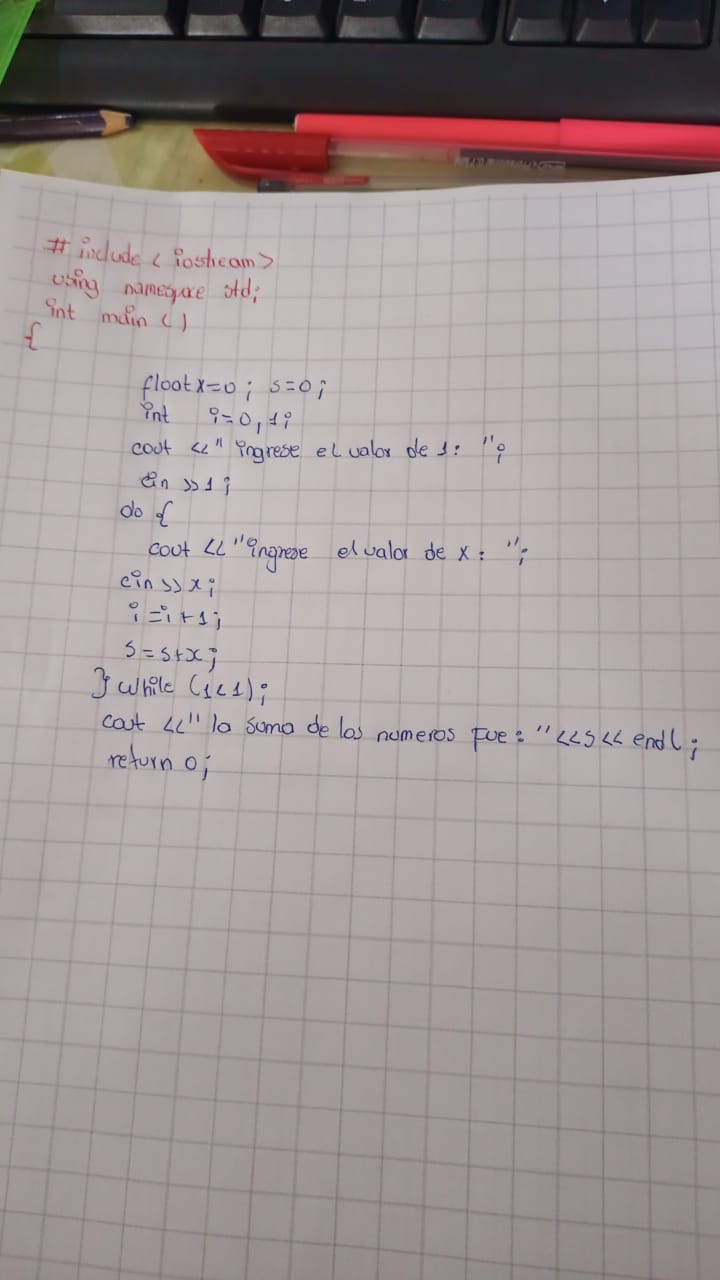 # include < iostream>
using namespace std;
int main ()
{
float x=0; s=0;
int i=0,1;
cout <<" ingrese el valor de 1: ";
cin >>1;
do {
cout <<"ingrese el valor de x: ";
cin>>x;
i=i+1;
s=s+x;
} while (1<1);
cout <<" la suma de los numeros fue: "<<s<< endl;
return 0;